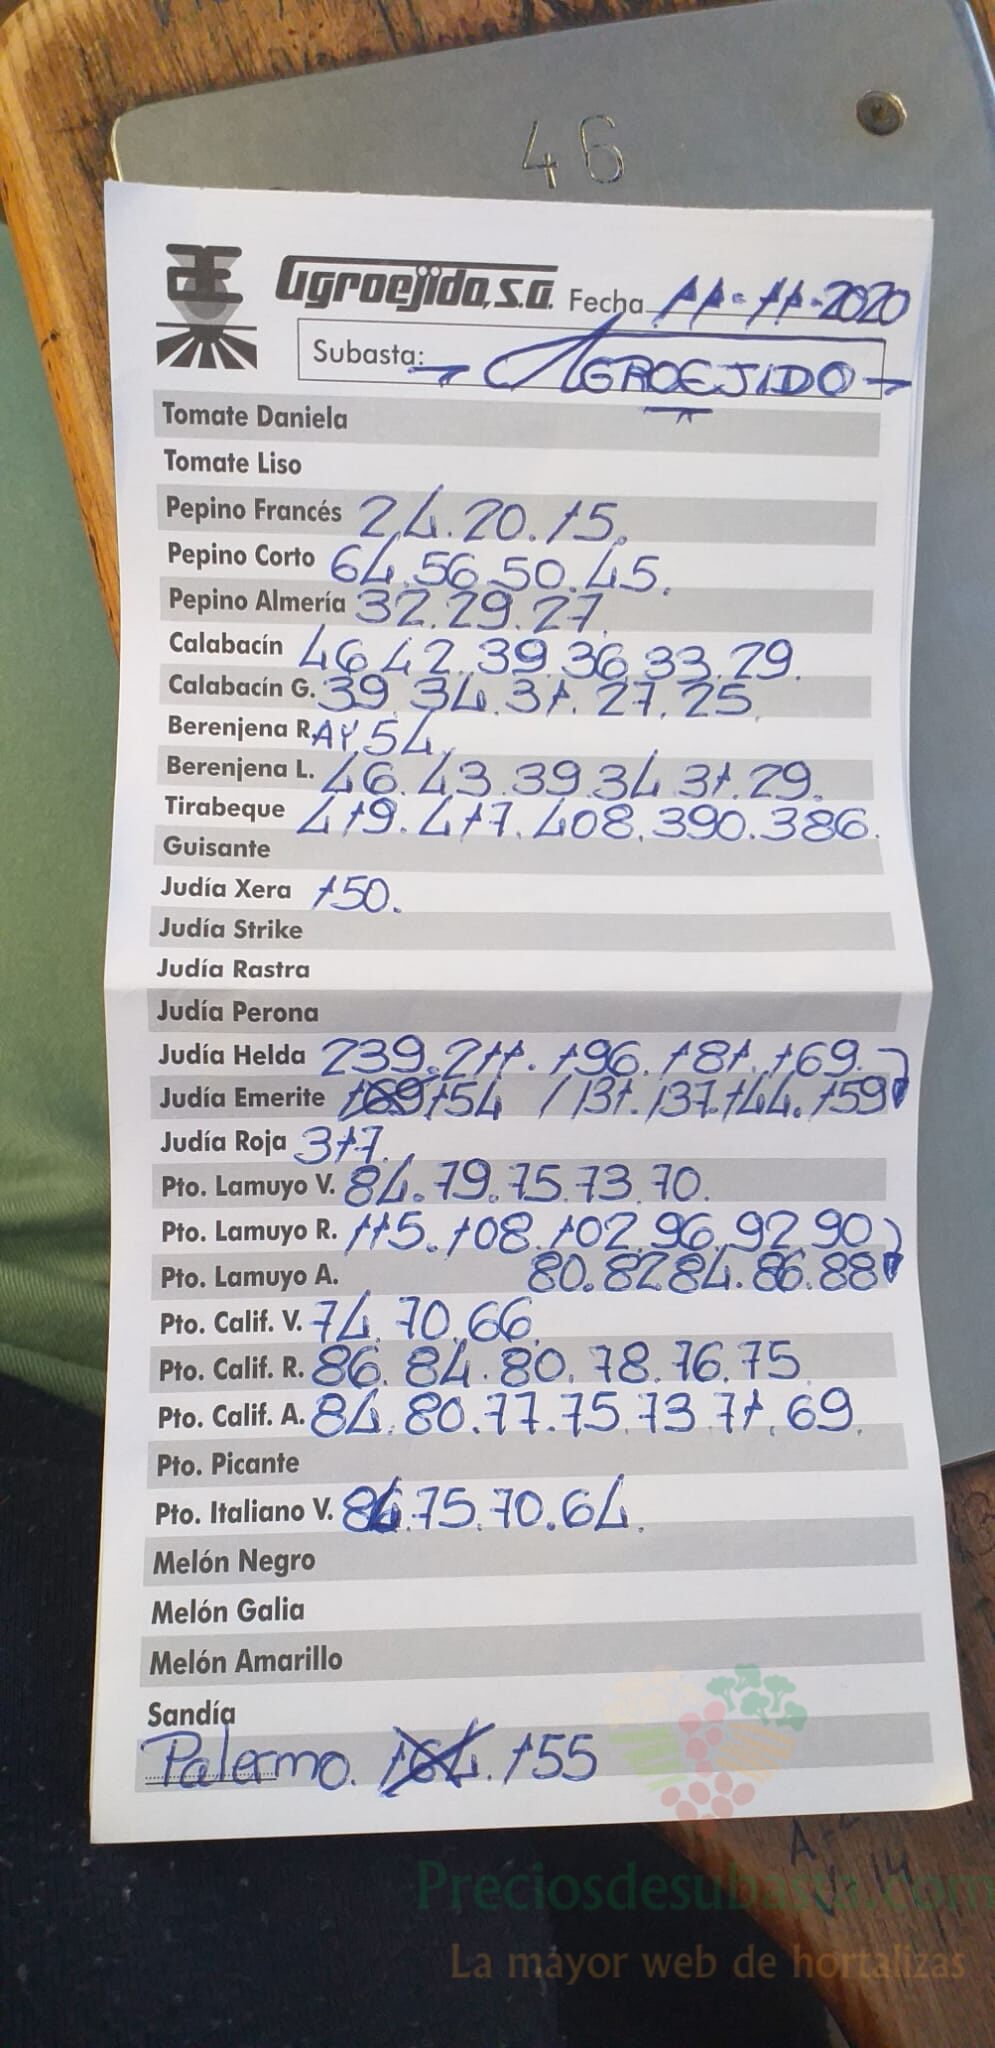 46
Agroejido, S.A. Fecha 11-11-2020
Subasta: AGROEJIDO
Tomate Daniela
Tomate Liso
Pepino Francés 24.20.15.
Pepino Corto 64.56.50.45.
Pepino Almería 32.29.27.
Calabacín 46.42.39.36.33.29.
Calabacín G. 39.34.31.27.25.
Berenjena R. AY 54.
Berenjena L. 46.43.39.34.31.29.
Tirabeque 419.417.408.390.386.
Guisante
Judía Xera 150.
Judía Strike
Judía Rastra
Judía Perona
Judía Helda 239.211.196.181.169.
Judía Emerite 169 154 / 131.137.144.159
Judía Roja 317.
Pto. Lamuyo V. 84.79.75.73.70.
Pto. Lamuyo R. 115.108.102.96.92.90
Pto. Lamuyo A. 80.82.84.86.88
Pto. Calif. V. 74.70.66.
Pto. Calif. R. 86.84.80.78.76.75
Pto. Calif. A. 84.80.77.75.73.71.69.
Pto. Picante
Pto. Italiano V. 84.75.70.64.
Melón Negro
Melón Galia
Melón Amarillo
Sandía
Palermo. 164. 155
Preciosdesubasta.com
La mayor web de hortalizas